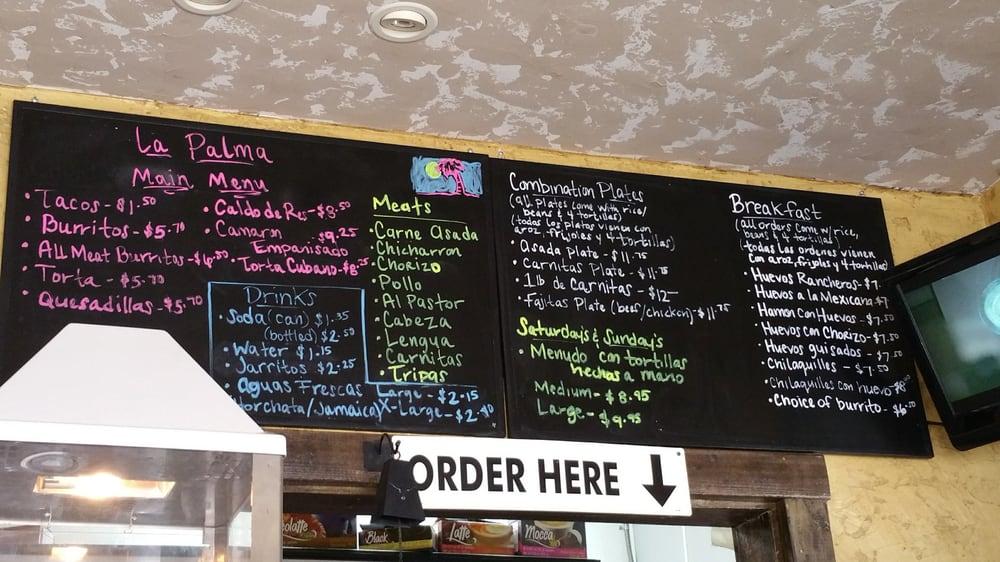 La Palma
Main Menu
• Tacos - $1.50
Burritos - $5.70
• All Meat Burritos - $6.50
• Torta - $5.70
• Quesadillas - $5.70
• Caldo de Res - $8.50
• Camaron $9.25
Empanisado
• Torta Cubano - $8.25
Drinks
• Soda (can) $1.35
(bottled) $2.50
• Water $1.15
• Jarritos $2.25
• Aguas Frescas Large - $2.15
(Horchata/Jamaica) X-Large - $2.90
Meats
• Carne Asada
• Chicharron
• Chorizo
• Pollo
• Al Pastor
• Cabeza
• Lengua
• Carnitas
• Tripas
Combination Plates
(all plates come with rice/
beans & 4 tortillas)
(todos los platos vienen con
aroz, frijoles y 4 tortillas)
• Asada Plate - $11.75
• Carnitas Plate - $11.75
• 1lb de Carnitas - $12
• Fajitas Plate (beef/chicken) - $11.75
Saturdays & Sundays
• Menudo con tortillas
hechas a mano
Medium - $8.95
Large - $9.95
Breakfast
(all orders come w/ rice,
beans & 4 tortillas)
(todas las ordenes vienen
con aroz, frijoles y 4 tortillas)
Huevos Rancheros - $7
Huevos a la Mexicana $7
Hamon con Huevos - $7.50
• Huevos con Chorizo - $7.50
• Huevos guisados - $7.50
• Chilaquilles - $7.50
• Chilaquilles con huevo $8
• Choice of burrito - $6.50
ORDER HERE
Black
Latte
Mocca